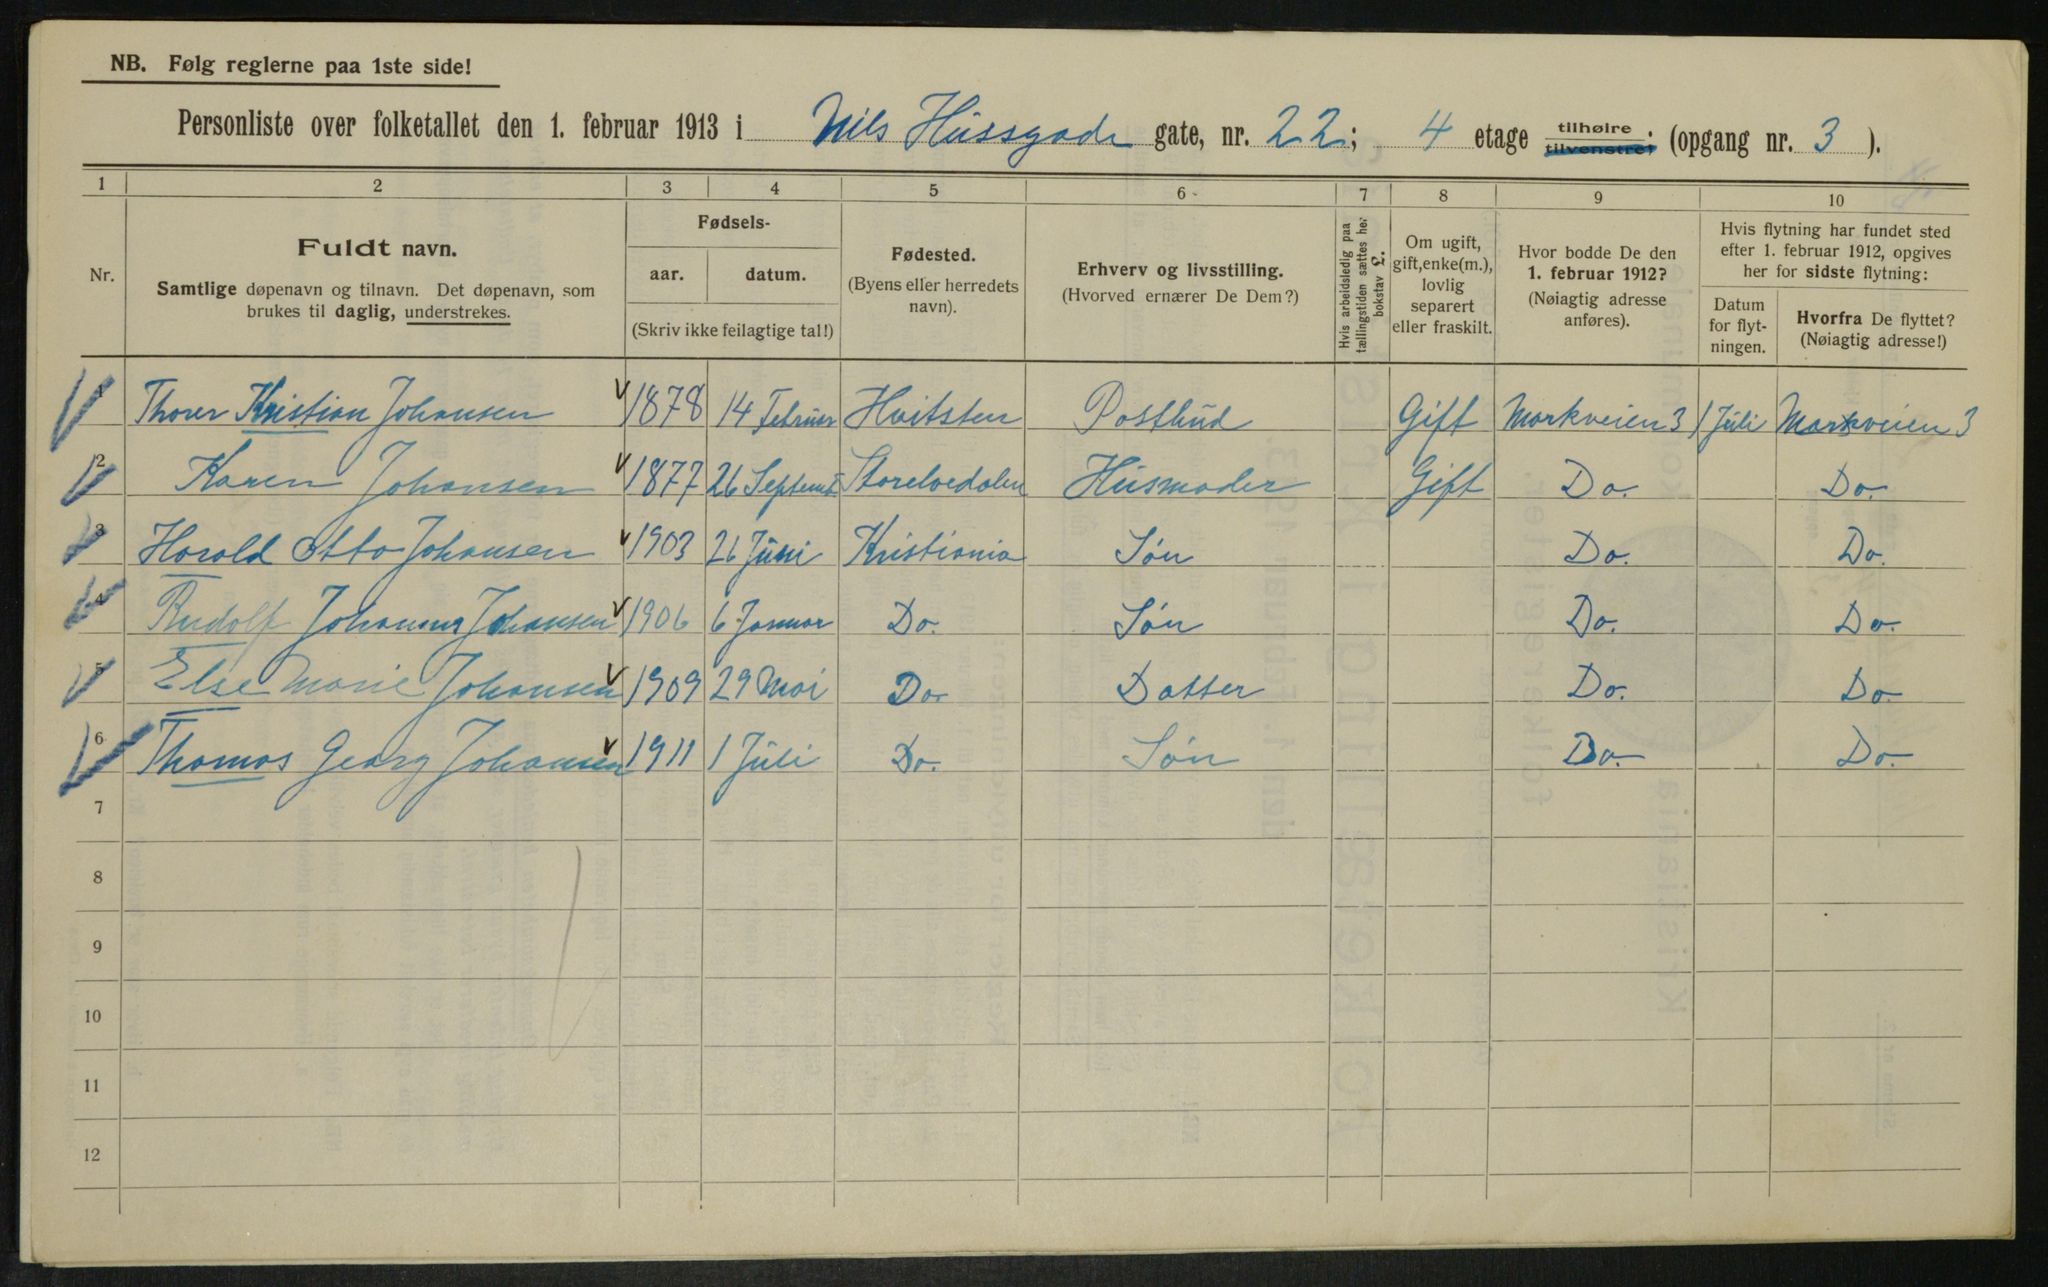 NB. Følg reglerne paa 1ste side!
Personliste over folketallet den 1. februar 1913 i Nils Hussgade gate, nr. 22; 4 etage tilhøire tilvenstre; (opgang nr. 3 ).
1 2 3 4 5 6 7 8 9 10
Nr.
Fuldt navn.
Samtlige døpenavn og tilnavn. Det døpenavn, som
brukes til daglig, understrekes.
Fødsels-
aar. datum.
(Skriv ikke feilagtige tal!)
Fødested.
(Byens eller herredets
navn).
Erhverv og livsstilling.
(Hvorved ernærer De Dem?)
Hvis arbeidsledig paa
tællingstiden sættes her
bokstav L.
Om ugift,
gift, enke(m.),
lovlig
separert
eller fraskilt.
Hvor bodde De den
1. februar 1912?
(Nøiagtig adresse
anføres).
Hvis flytning har fundet sted
efter 1. februar 1912, opgives
her for sidste flytning:
Datum
for flyt-
ningen.
Hvorfra De flyttet?
(Nøiagtig adresse!)
1 Thorer Kristian Johansen 1878 14 Februar Hvitsten Postbud Gift Markveien 3 1 Juli Markveien 3
2 Karen Johansen 1877 26 Septemb Storelvedalen Husmoder Gift Do. Do.
3 Harald Otto Johansen 1903 26 Juni Kristiania Søn Do. Do.
4 Rudolf Johannes Johansen 1906 6 Januar Do. Søn Do. Do.
5 Else Marie Johansen 1909 29 Mai Do. Datter Do. Do.
6 Thomas Georg Johansen 1911 1 Juli Do. Søn Do. Do.
7
8
9
10
11
12